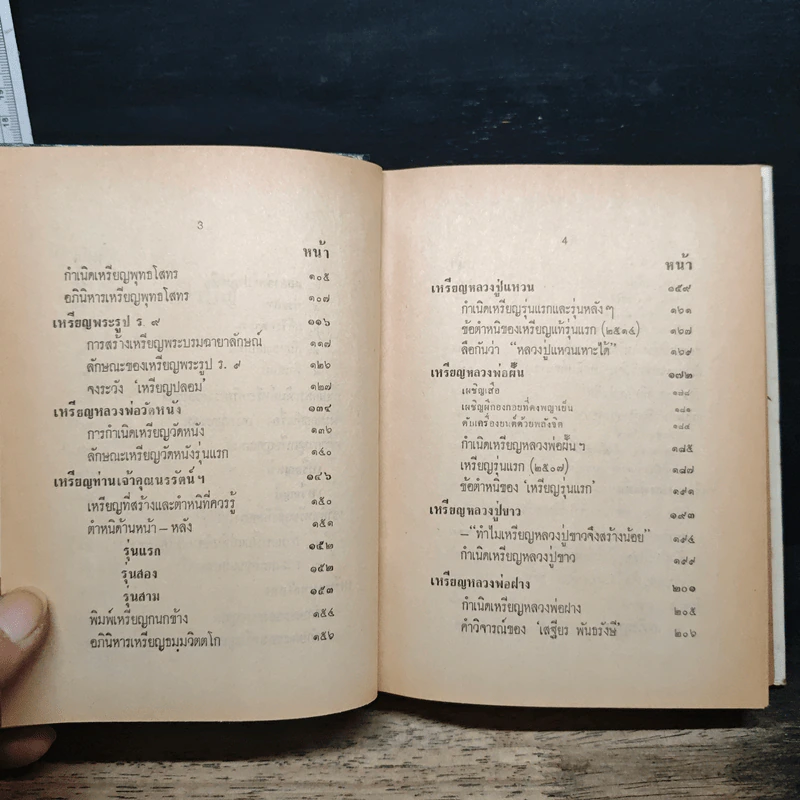 3
หน้า
กำเนิดเหรียญพุทธโสทร ๑๐๕
อภินิหารเหรียญพุทธโสทร ๑๐๗
เหรียญพระรูป ร. ๙ ๑๑๖
การสร้างเหรียญพระบรมฉายาลักษณ์ ๑๑๗
ลักษณะของเหรียญพระรูป ร. ๙ ๑๒๖
จงระวัง ‘เหรียญปลอม’ ๑๒๗
เหรียญหลวงพ่อวัดหนัง ๑๓๔
การกำเนิดเหรียญวัดหนัง ๑๓๖
ลักษณะเหรียญวัดหนังรุ่นแรก ๑๔๐
เหรียญท่านเจ้าคุณนรรัตน์ฯ ๑๔๖
เหรียญที่สร้างและตำหนิที่ควรรู้ ๑๕๐
ตำหนิด้านหน้า – หลัง ๑๕๑
รุ่นแรก ๑๕๒
รุ่นสอง ๑๕๒
รุ่นสาม ๑๕๓
พิมพ์เหรียญกนกข้าง ๑๕๔
อภินิหารเหรียญธมฺมวิตตโก ๑๕๖
4
หน้า
เหรียญหลวงปู่แหวน ๑๕๙
กำเนิดเหรียญรุ่นแรกและรุ่นหลังๆ ๑๖๑
ข้อตำหนิของเหรียญแท้รุ่นแรก (๒๕๑๔) ๑๖๗
ลือกันว่า “หลวงปู่แหวนเหาะได้” ๑๖๙
เหรียญหลวงพ่อฝั้น ๑๗๒
เผชิญเสือ
เผชิญผีกองกอยที่ดงพญาเย็น ๑๘๑
ดับเครื่องยนต์ด้วยพลังจิต
กำเนิดเหรียญหลวงพ่อฝั้นฯ ๑๘๕
เหรียญรุ่นแรก (๒๕๐๗) ๑๘๗
ข้อตำหนิของ ‘เหรียญรุ่นแรก’ ๑๙๑
เหรียญหลวงปู่ขาว ๑๙๓
–“ทำไมเหรียญหลวงปู่ขาวจึงสร้างน้อย” ๑๙๔
กำเนิดเหรียญหลวงปู่ขาว ๑๙๙
เหรียญหลวงพ่อฝาง ๒๐๑
กำเนิดเหรียญหลวงพ่อฝาง ๒๐๕
คำวิจารณ์ของ ‘เสฐียร พันธรังษี’ ๒๐๖